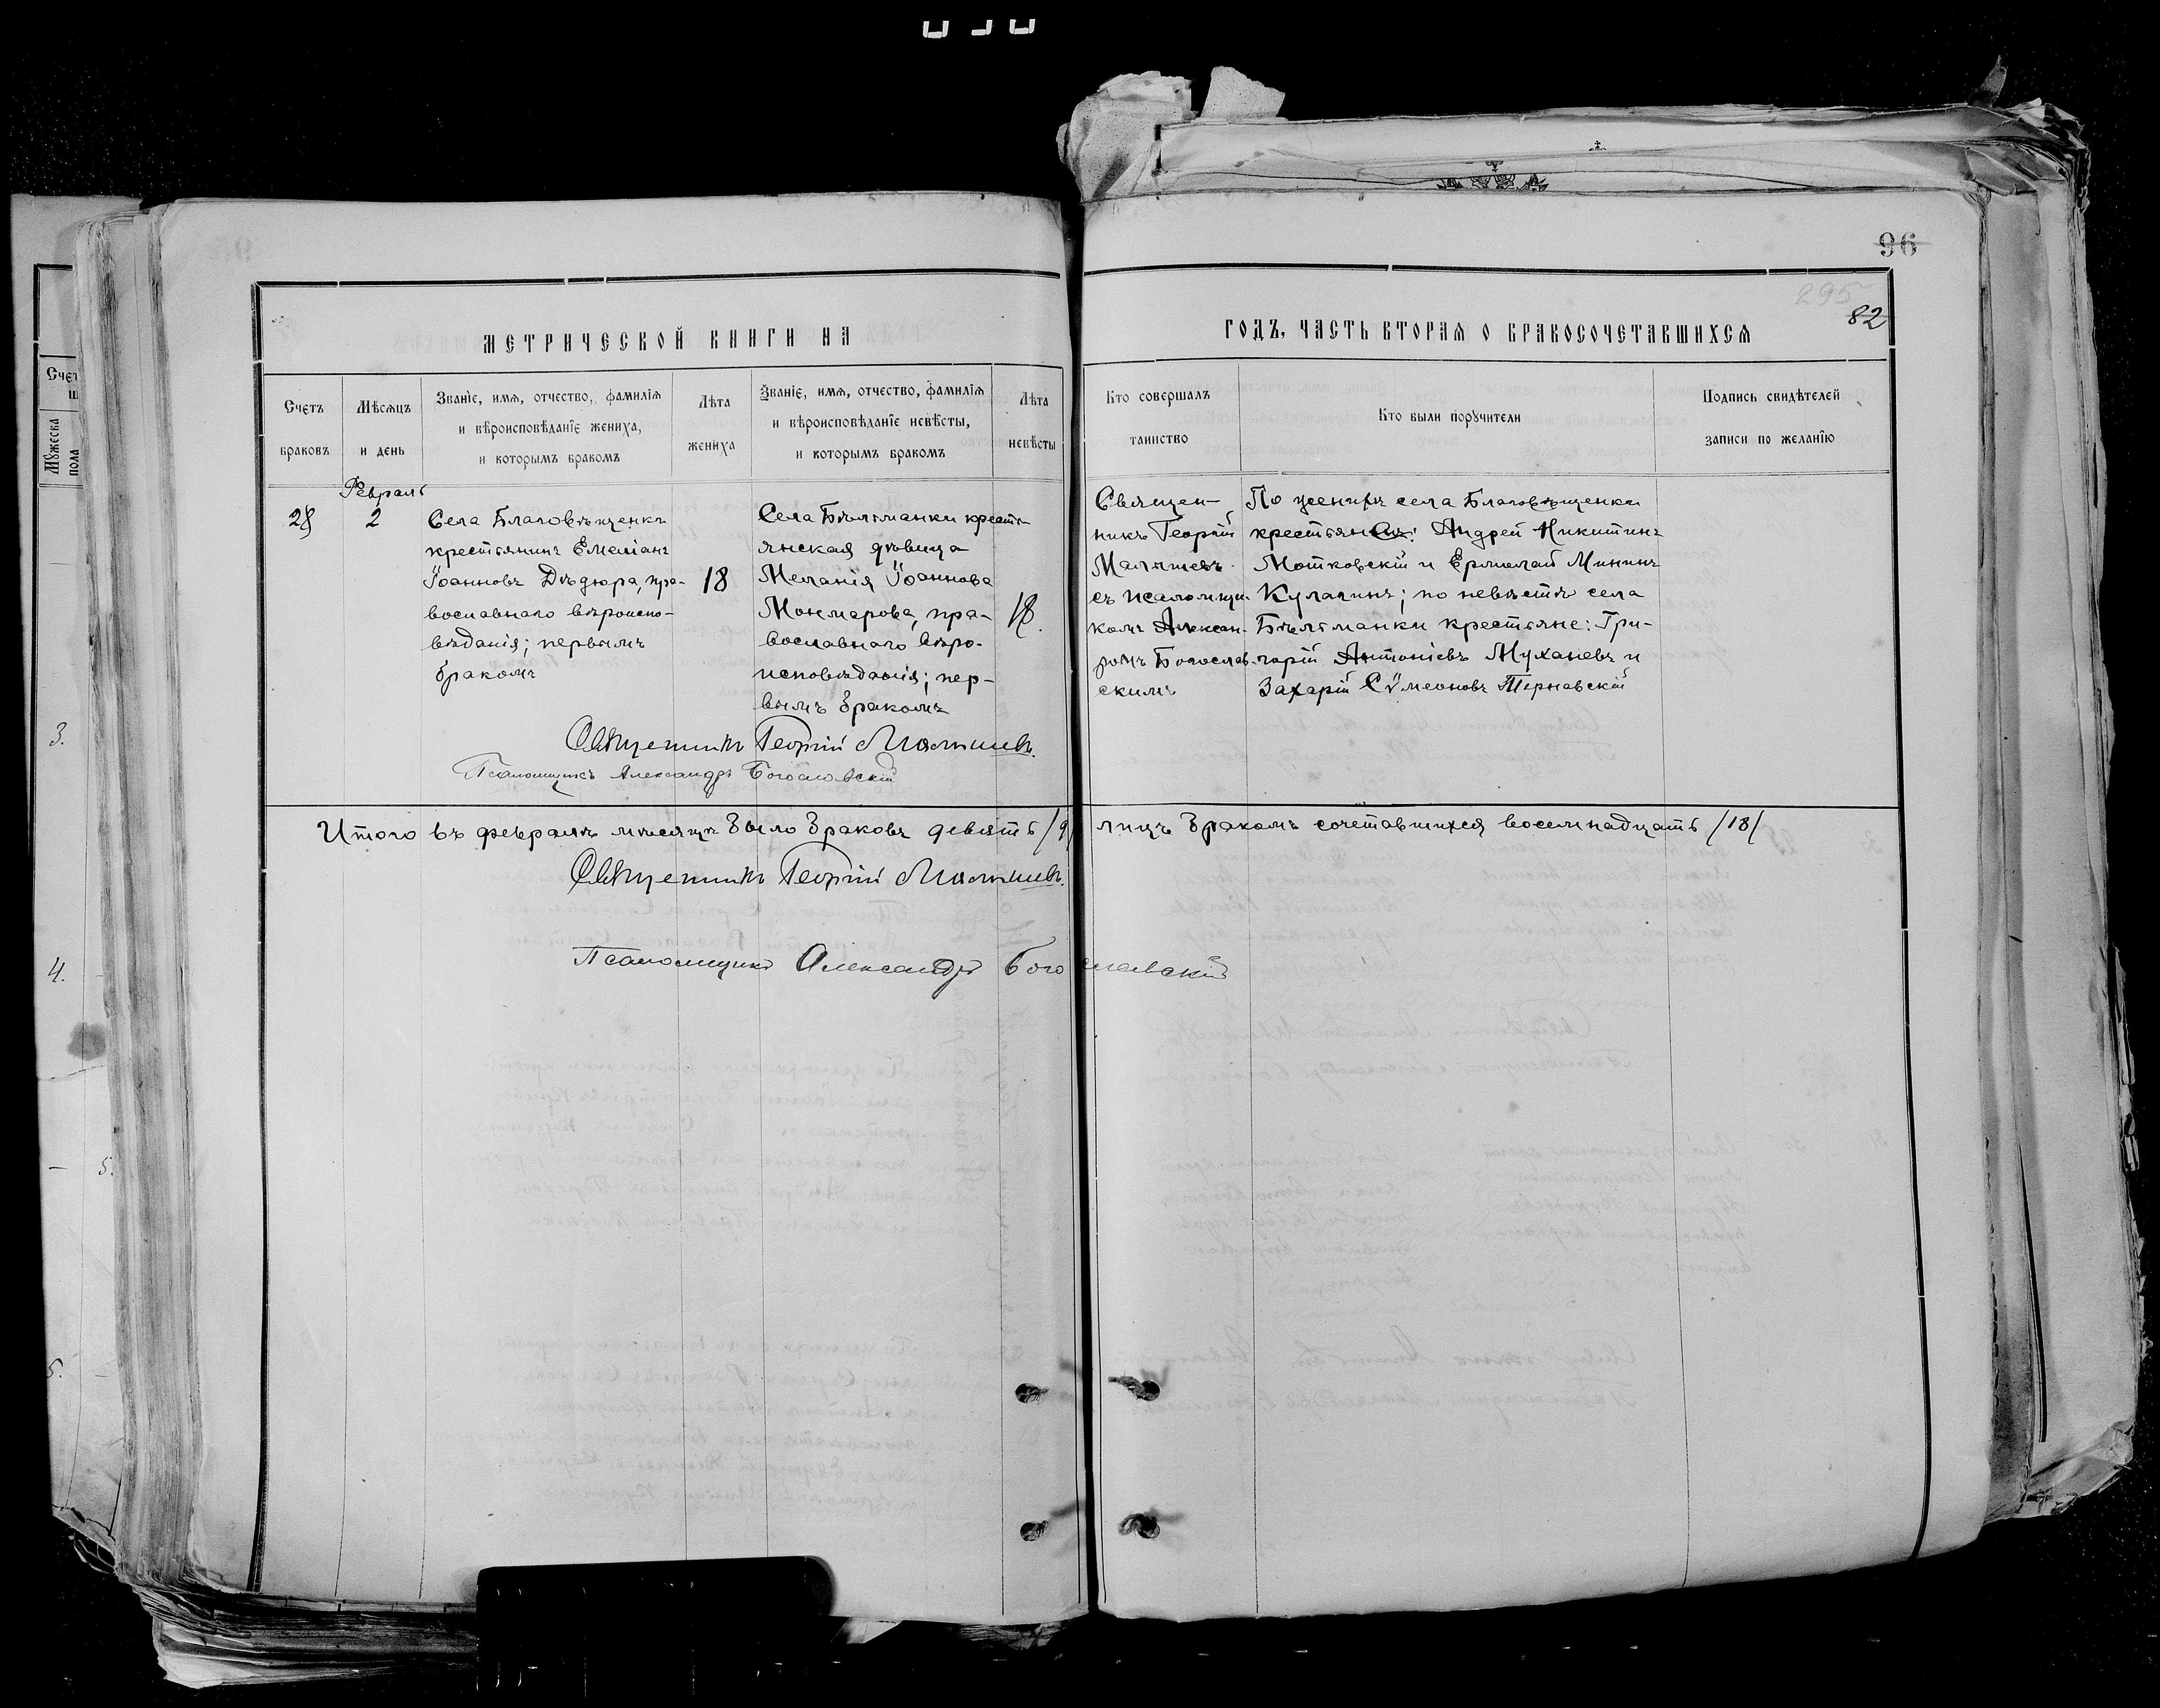 96
295
82
МЕТРИЧЕСКОЙ КНИГИ НА
ГОДЪ, ЧАСТЬ ВТОРАЯ О БРАКОСОЧЕТАВШИХСЯ
Счетъ
браковъ
Мѣсяцъ
и день
Званіе, имя, отчество, фамилія
и вѣроисповѣданіе жениха,
и которымъ бракомъ
Лѣта
жениха
Званіе, имя, отчество, фамилія
и вѣроисповѣданіе невѣсты,
и которымъ бракомъ
Лѣта
невѣсты
Кто совершалъ
таинство
Кто были поручители
Подпись свидѣтелей
записи по желанію
28
Февраль
2
Села Благовѣщенки
крестьянинъ Емеліанъ
Іоанновъ Дѣдюра, пра-
вославнаго вѣроиспо-
вѣданія; первымъ
бракомъ
18
Села Бѣльманки кресть-
янская дѣвица
Меланія Іоаннова
Мокмарова, пра-
вославнаго вѣро-
исповѣданія; пер-
вымъ бракомъ
18.
Священ-
никъ Георгій
Малышевъ
съ псаломщи-
комъ Алексан-
ромъ Богослов-
скимъ
По женихѣ села Благовѣщенки
крестьяне: Андрей Никитинъ
Мотковскій и Ермолай Мининъ
Кулагинъ; по невѣстѣ села
Бѣльманки крестьяне: Гри-
горій Антоніевъ Муханевъ и
Захарій Сѵмеоновъ Тернавскій
Священникъ Георгій Малышевъ.
Псаломщикъ Александръ Богословскій
Итого въ февралѣ мѣсяцѣ было браковъ девять /9/ лицъ бракомъ сочетавшихся восемнадцать /18/
Священникъ Георгій Малышевъ.
Псаломщикъ Александръ Богословскій
Счет
Мужеска
пола
3.
4.
5.
5.